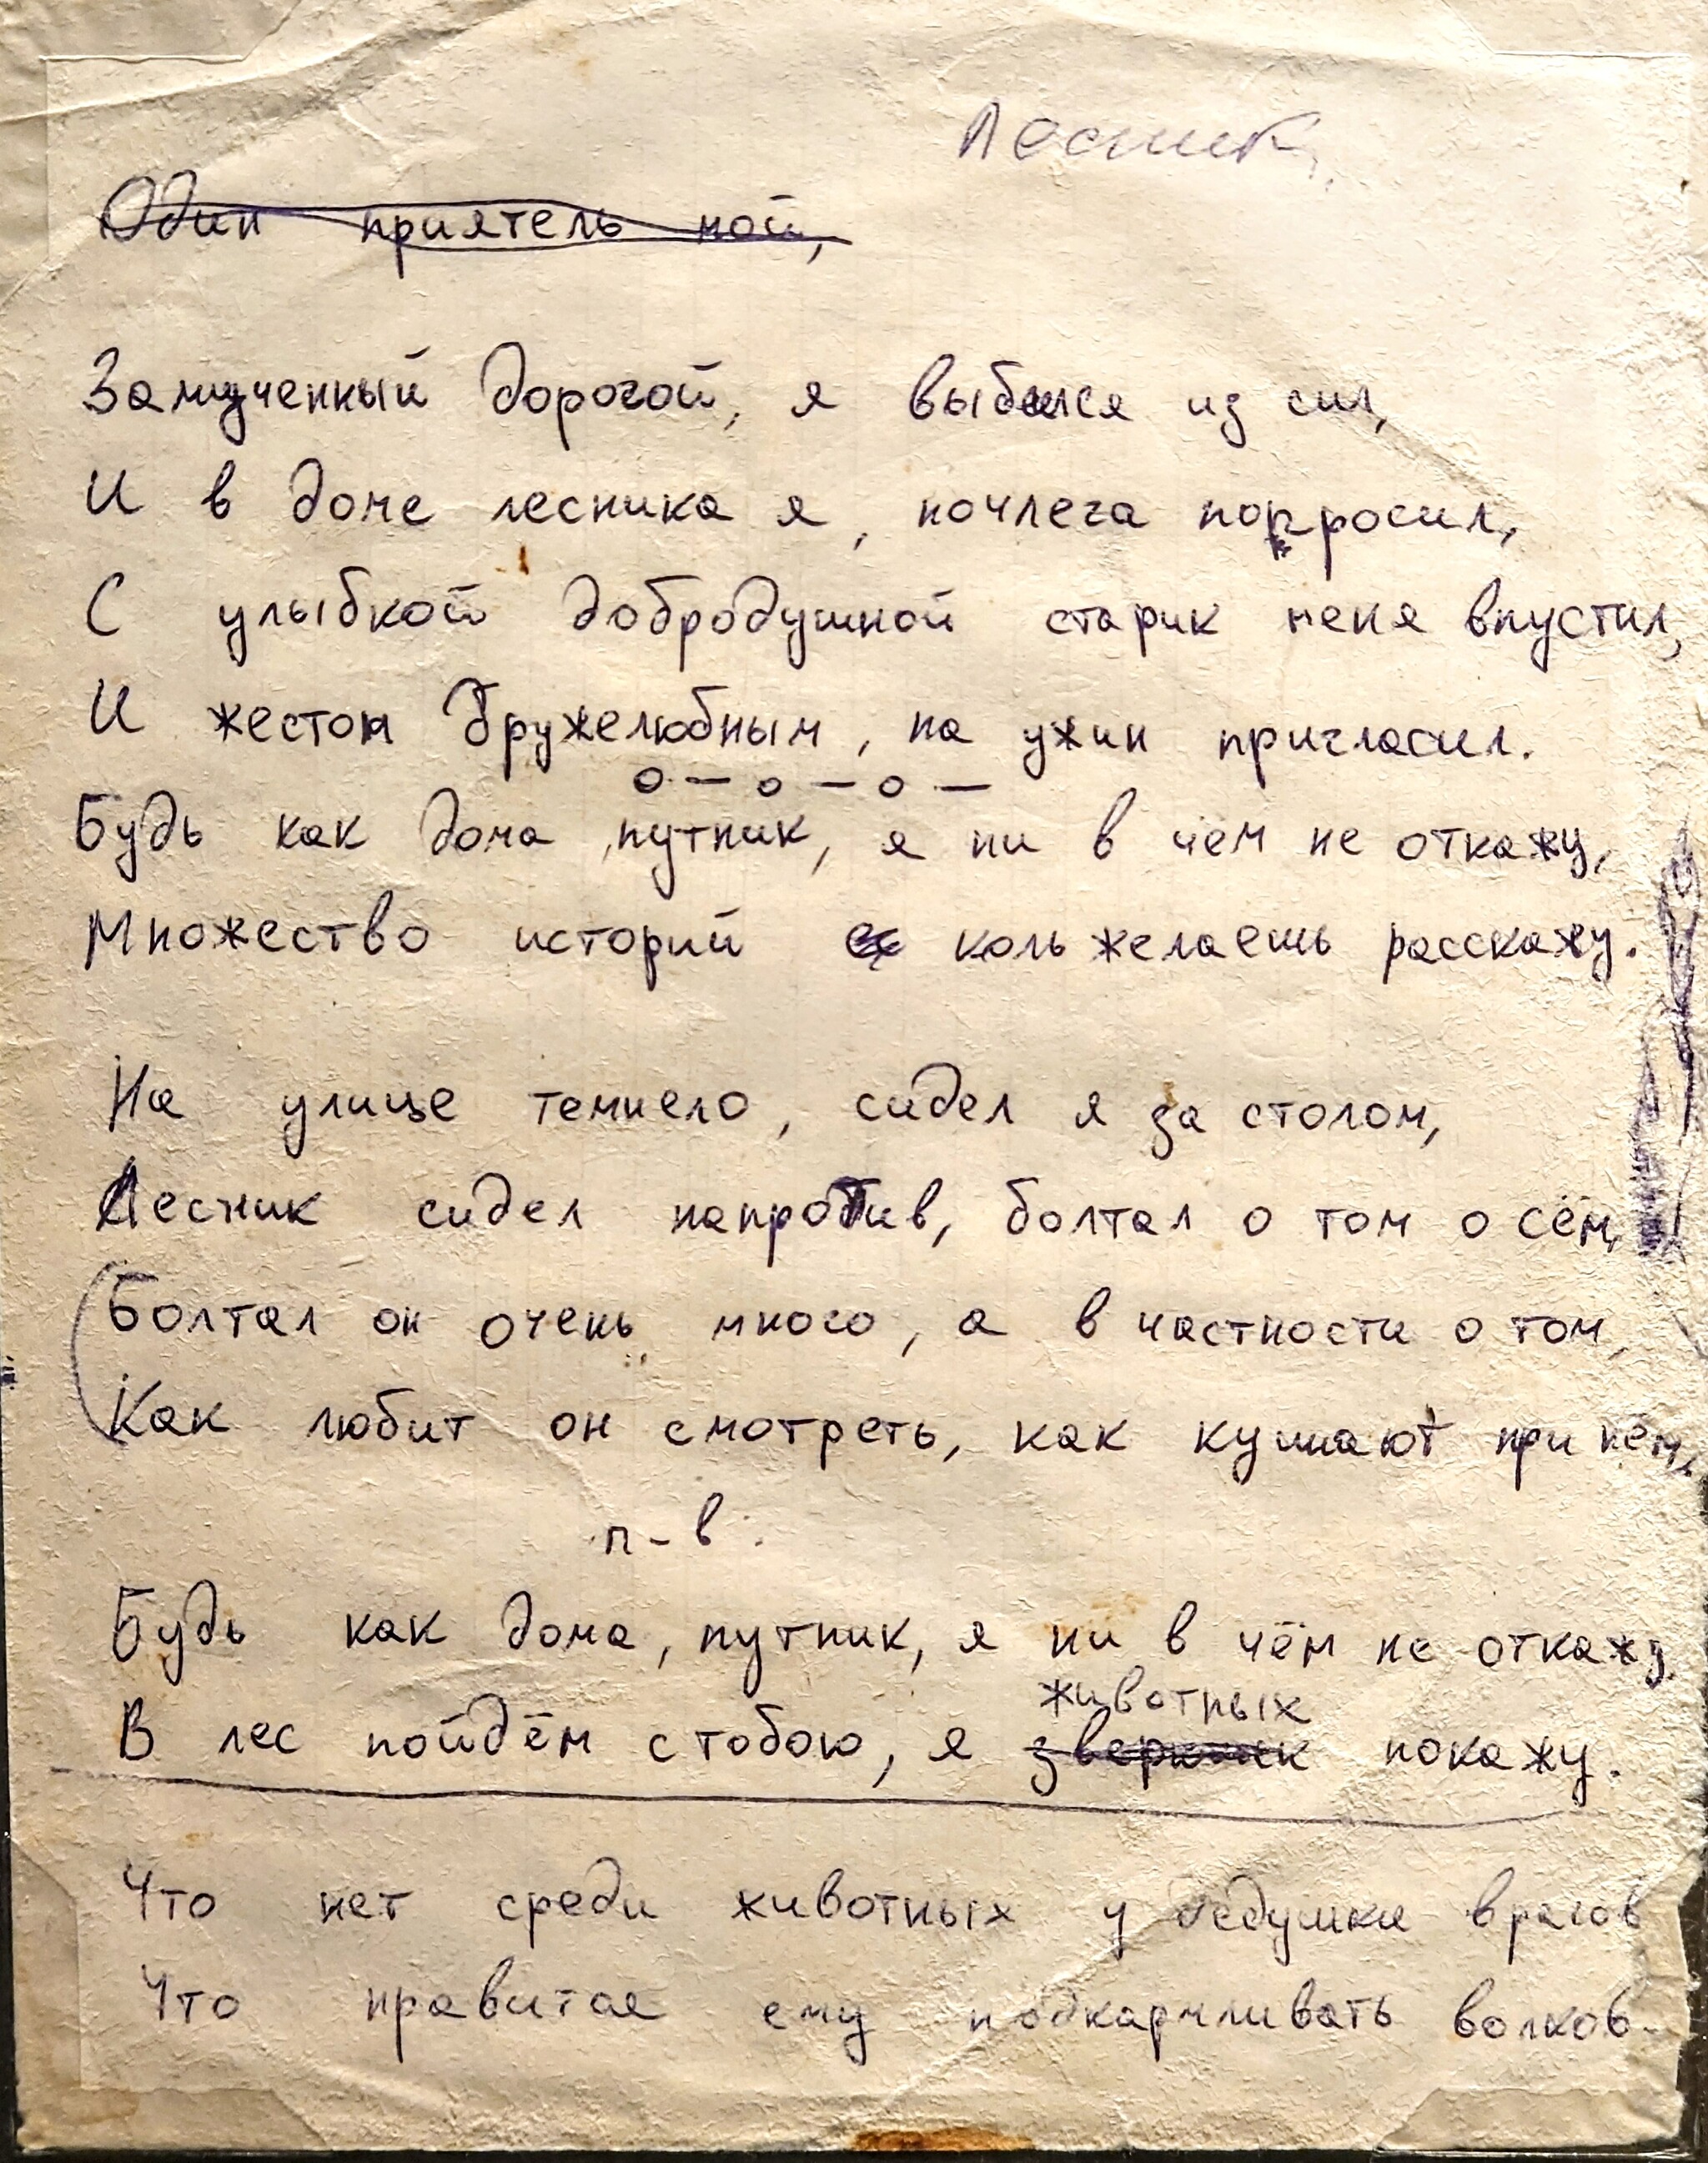 Лесник.
Один приятель мой,
Замученный дорогой, я выбился из сил,
И в доме лесника я, ночлега попросил,
С улыбкой добродушной старик меня впустил,
И жестом дружелюбным, на ужин пригласил.
о – о – о –
Будь как дома ,путник, я ни в чем не откажу,
Множество историй коль желаешь расскажу.
На улице темнело, сидел я за столом,
Лесник сидел напротив, болтал о том о сём,
Болтал он очень много, а в частности о том,
Как любит он смотреть, как кушают при нём,
п – в.
Будь как дома, путник, я ни в чём не откажу.
животных
В лес пойдём с тобою, я покажу.
Что нет среди животных у дедушки врагов
Что нравится ему подкармливать волков.